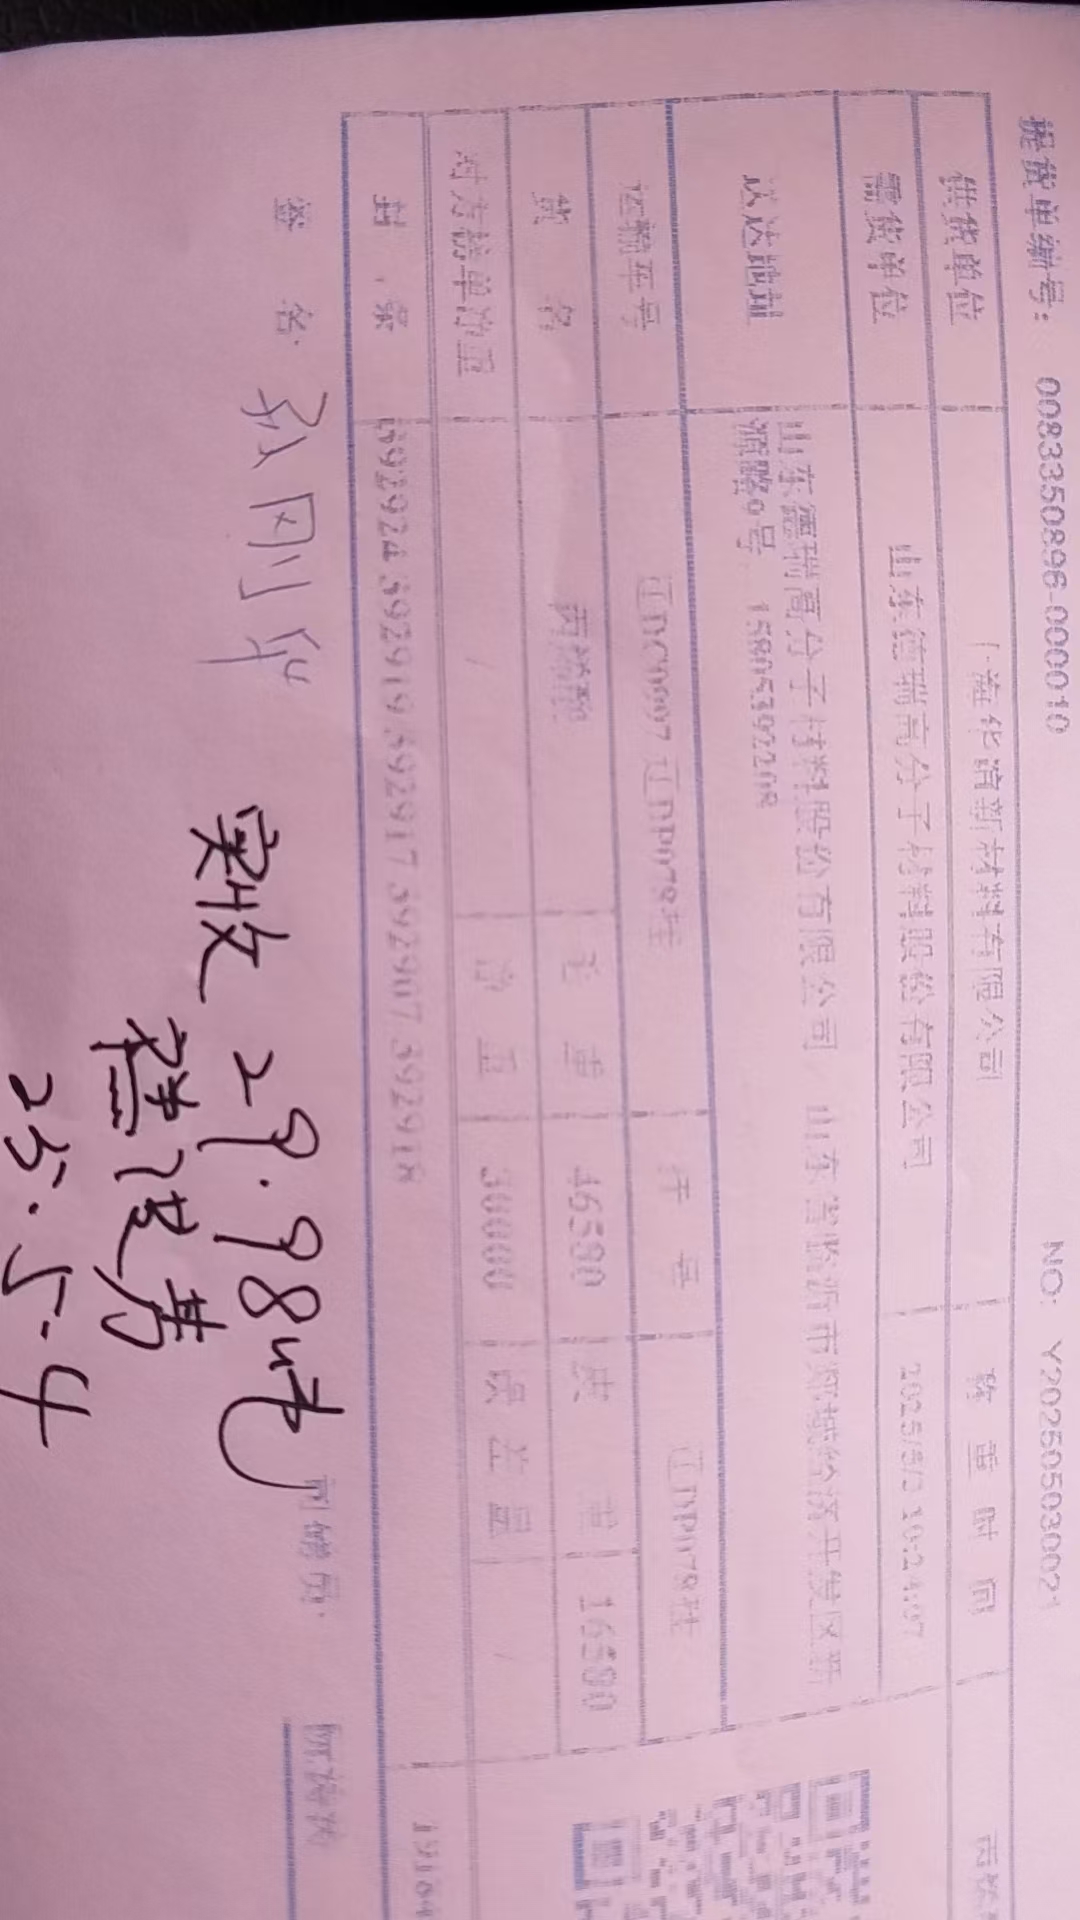 提货单编号: 0083350896-000010 NO: Y20250503002
供货单位 海华谊新材料有限公司 称重时间
需货单位 山东德瑞高分子材料股份有限公司 2025/5/3
送达地址 山东德瑞高分子材料股份有限公司/山东省临沂市郯城经济开发区新
9号 15805392208
运输车号 辽 辽DP079挂 开号 辽DP079挂
货名 丙烯酸 毛重 46580 皮重 16580
对方榜单净重 / 净重 30000 误差量 /
封 392919 392917 392907 392918
签名: 孙刚华 司磅员:
实收 29.98吨
25.5-4